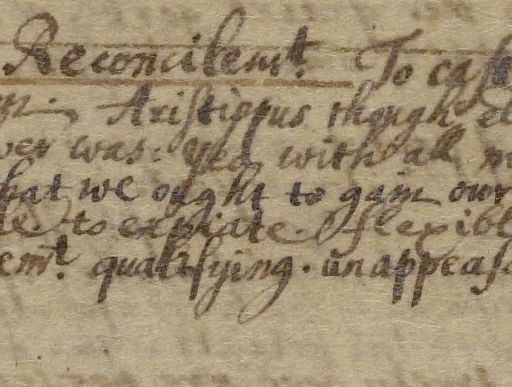 Reconcilemt. To cast
Aristippus though el
ver was. yea with all m
hat we ought to gain our
to expiate. flexibl
emt. qualifying. unappeas